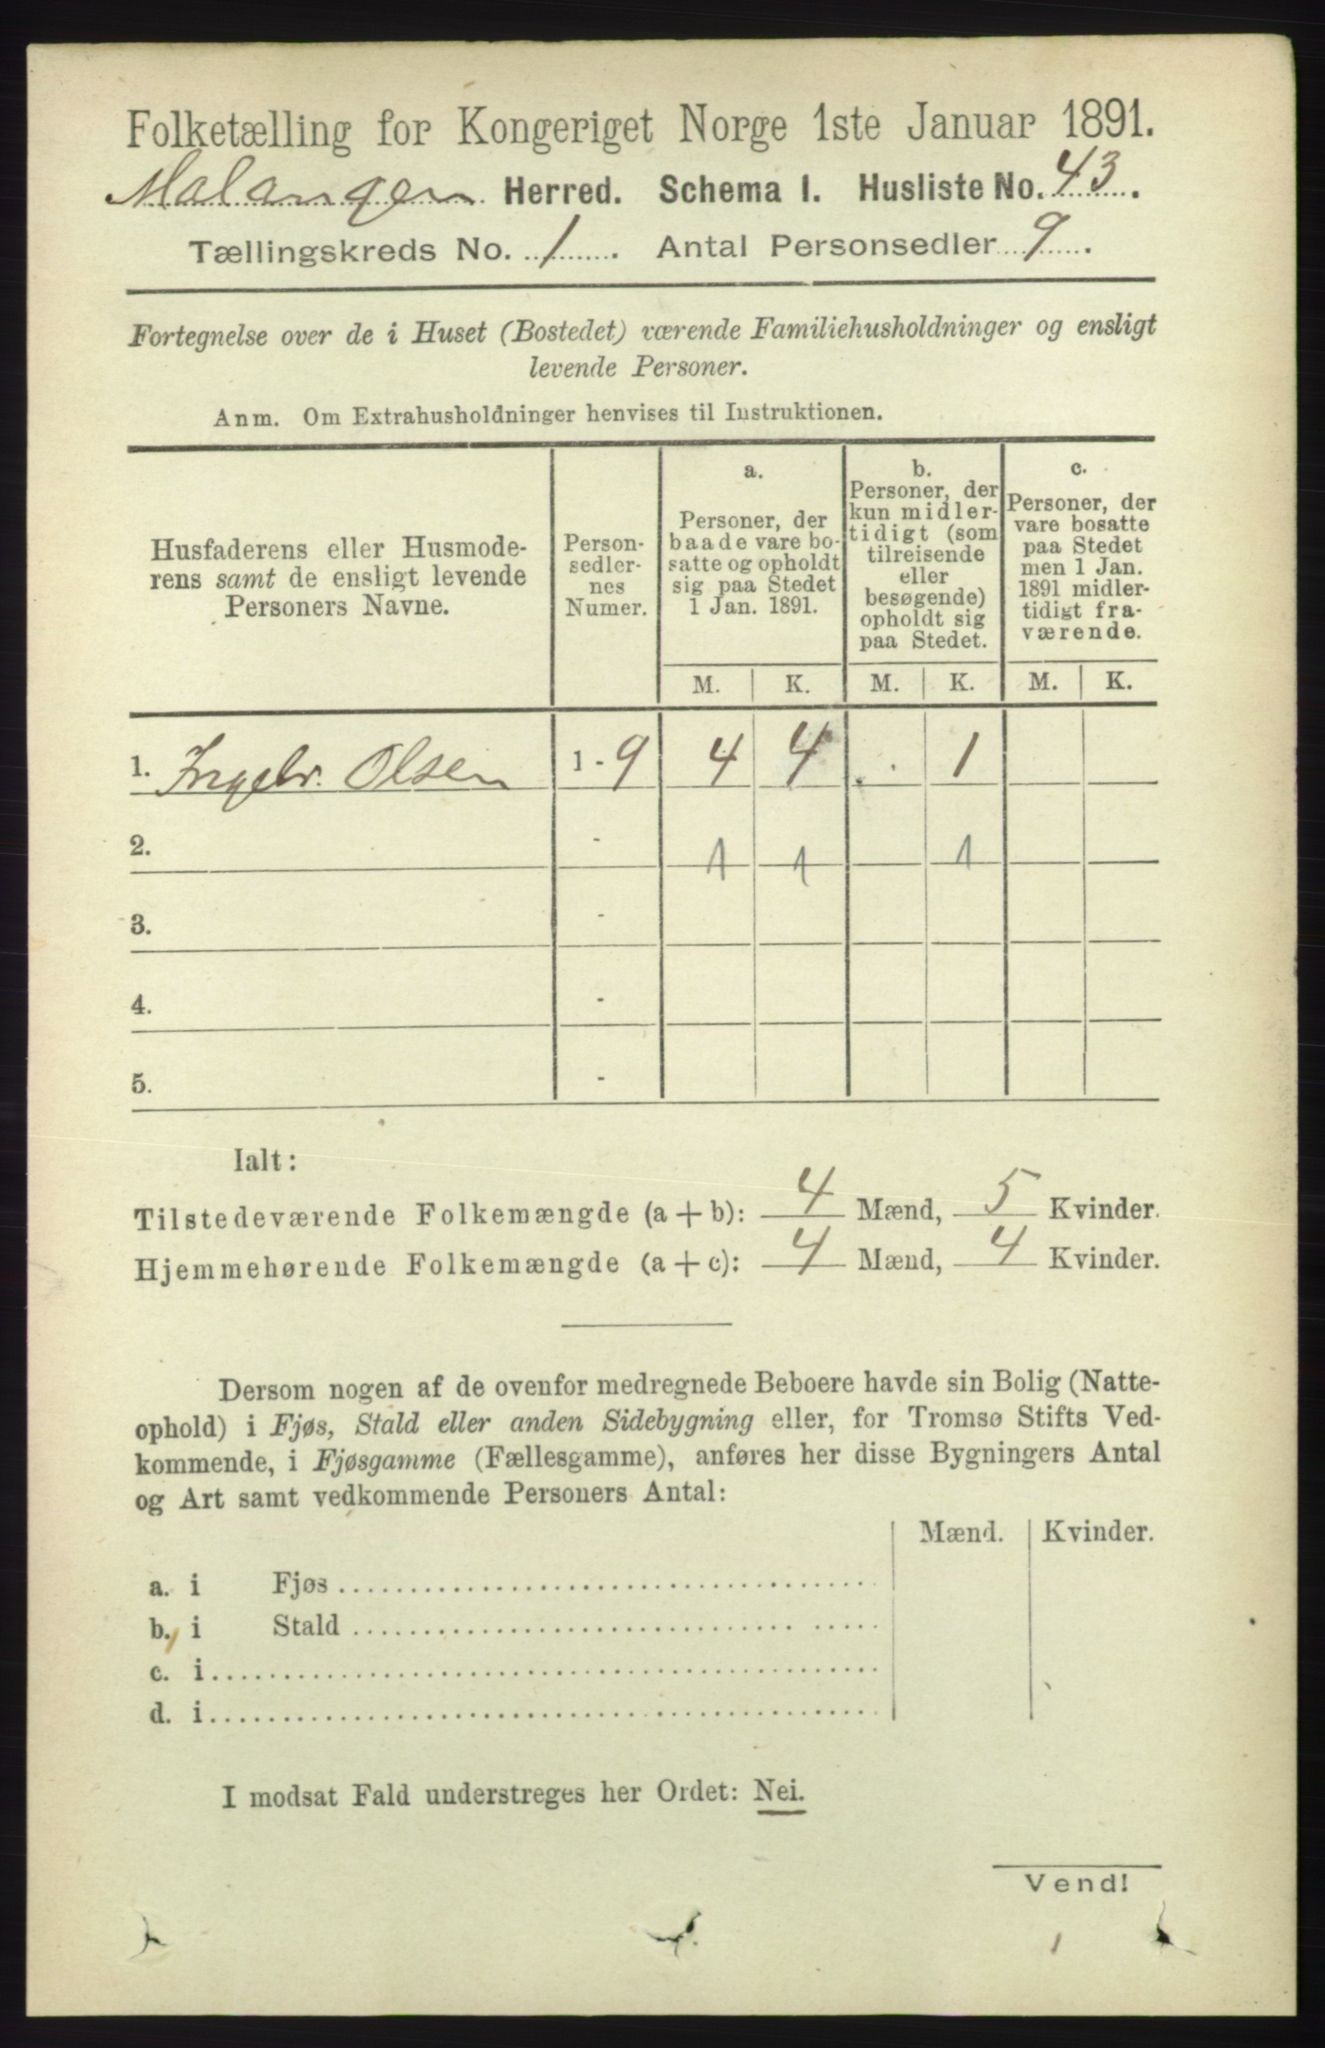 Folketælling for Kongeriget Norge 1ste Januar 1891.
Malangen Herred. Schema I. Husliste No. 43.
Tællingskreds No. 1. Antal Personsedler 9.
Fortegnelse over de i Huset (Bostedet) værende Familiehusholdninger og ensligt
levende Personer.
Anm. Om Extrahusholdninger henvises til Instruktionen.
Husfaderens eller Husmode-
rens samt de ensligt levende
Personers Navne.
Person-
sedler-
nes
Numer.
a.
Personer, der
baade vare bo-
satte og opholdt
sig paa Stedet
1 Jan. 1891.
b.
Personer, der
kun midler-
tidigt (som
tilreisende
eller
besøgende)
opholdt sig
paa Stedet.
c.
Personer, der
vare bosatte
paa Stedet
men 1 Jan.
1891 midler-
tidigt fra-
værende.
M. K. M. K. M. K.
1. Ingebr. Olsen 1 - 9 4 4 . 1
2. - 1 1 1
3. -
4. -
5. -
Ialt:
Tilstedeværende Folkemængde (a + b): 4 Mænd, 5 Kvinder.
Hjemmehørende Folkemængde (a + c): 4 Mænd, 4 Kvinder.
Dersom nogen af de ovenfor medregnede Beboere havde sin Bolig (Natte-
ophold) i Fjøs, Stald eller anden Sidebygning eller, for Tromsø Stifts Ved-
kommende, i Fjøsgamme (Fællesgamme), anføres her disse Bygningers Antal
og Art samt vedkommende Personers Antal:
Mænd. Kvinder.
a. i Fjøs
b. i Stald
c. i
d. i
I modsat Fald understreges her Ordet: Nei.
Vend!
1